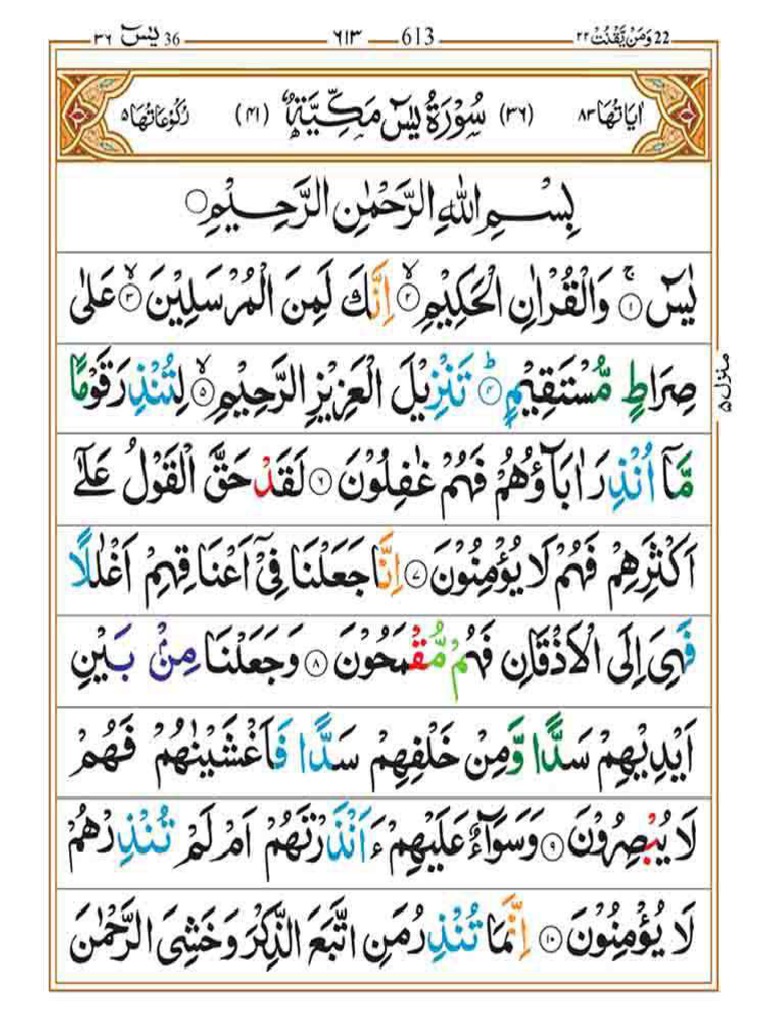 22 وَمَنۡ يَّقۡنُتۡ ٢٢ 613 ٦١٣ 36 يٰسٓ ٣٦
اٰيَاتُهَا ٨٣ (٣٦) سُوۡرَةُ يٰسٓ مَكِّيَّةٌ (٤١) رُكُوۡعَاتُهَا ٥
بِسۡمِ اللّٰهِ الرَّحۡمٰنِ الرَّحِيۡمِ ۝
يٰسٓ ۚ﴿۱﴾ وَالۡقُرۡاٰنِ الۡحَكِيۡمِ ۙ﴿۲﴾ اِنَّكَ لَمِنَ الۡمُرۡسَلِيۡنَ ۙ﴿۳﴾ عَلٰى
صِرَاطٍ مُّسۡتَقِيۡمٍ ؕ﴿۴﴾ تَنۡزِيۡلَ الۡعَزِيۡزِ الرَّحِيۡمِ ۙ﴿۵﴾ لِتُنۡذِرَ قَوۡمًا
مَّاۤ اُنۡذِرَ اٰبَآؤُهُمۡ فَهُمۡ غٰفِلُوۡنَ ﴿۶﴾ لَقَدۡ حَقَّ الۡقَوۡلُ عَلٰٓى
اَكۡثَرِهِمۡ فَهُمۡ لَا يُؤۡمِنُوۡنَ ﴿۷﴾ اِنَّا جَعَلۡنَا فِىۡۤ اَعۡنَاقِهِمۡ اَغۡلٰلًا
فَهِىَ اِلَى الۡاَذۡقَانِ فَهُمۡ مُّقۡمَحُوۡنَ ﴿۸﴾ وَجَعَلۡنَا مِنۡۢ بَيۡنِ
اَيۡدِيۡهِمۡ سَدًّا وَّمِنۡ خَلۡفِهِمۡ سَدًّا فَاَغۡشَيۡنٰهُمۡ فَهُمۡ
لَا يُبۡصِرُوۡنَ ﴿۹﴾ وَسَوَآءٌ عَلَيۡهِمۡ ءَاَنۡذَرۡتَهُمۡ اَمۡ لَمۡ تُنۡذِرۡهُمۡ
لَا يُؤۡمِنُوۡنَ ﴿۱۰﴾ اِنَّمَا تُنۡذِرُ مَنِ اتَّبَعَ الذِّكۡرَ وَخَشِىَ الرَّحۡمٰنَ
منزل ۵